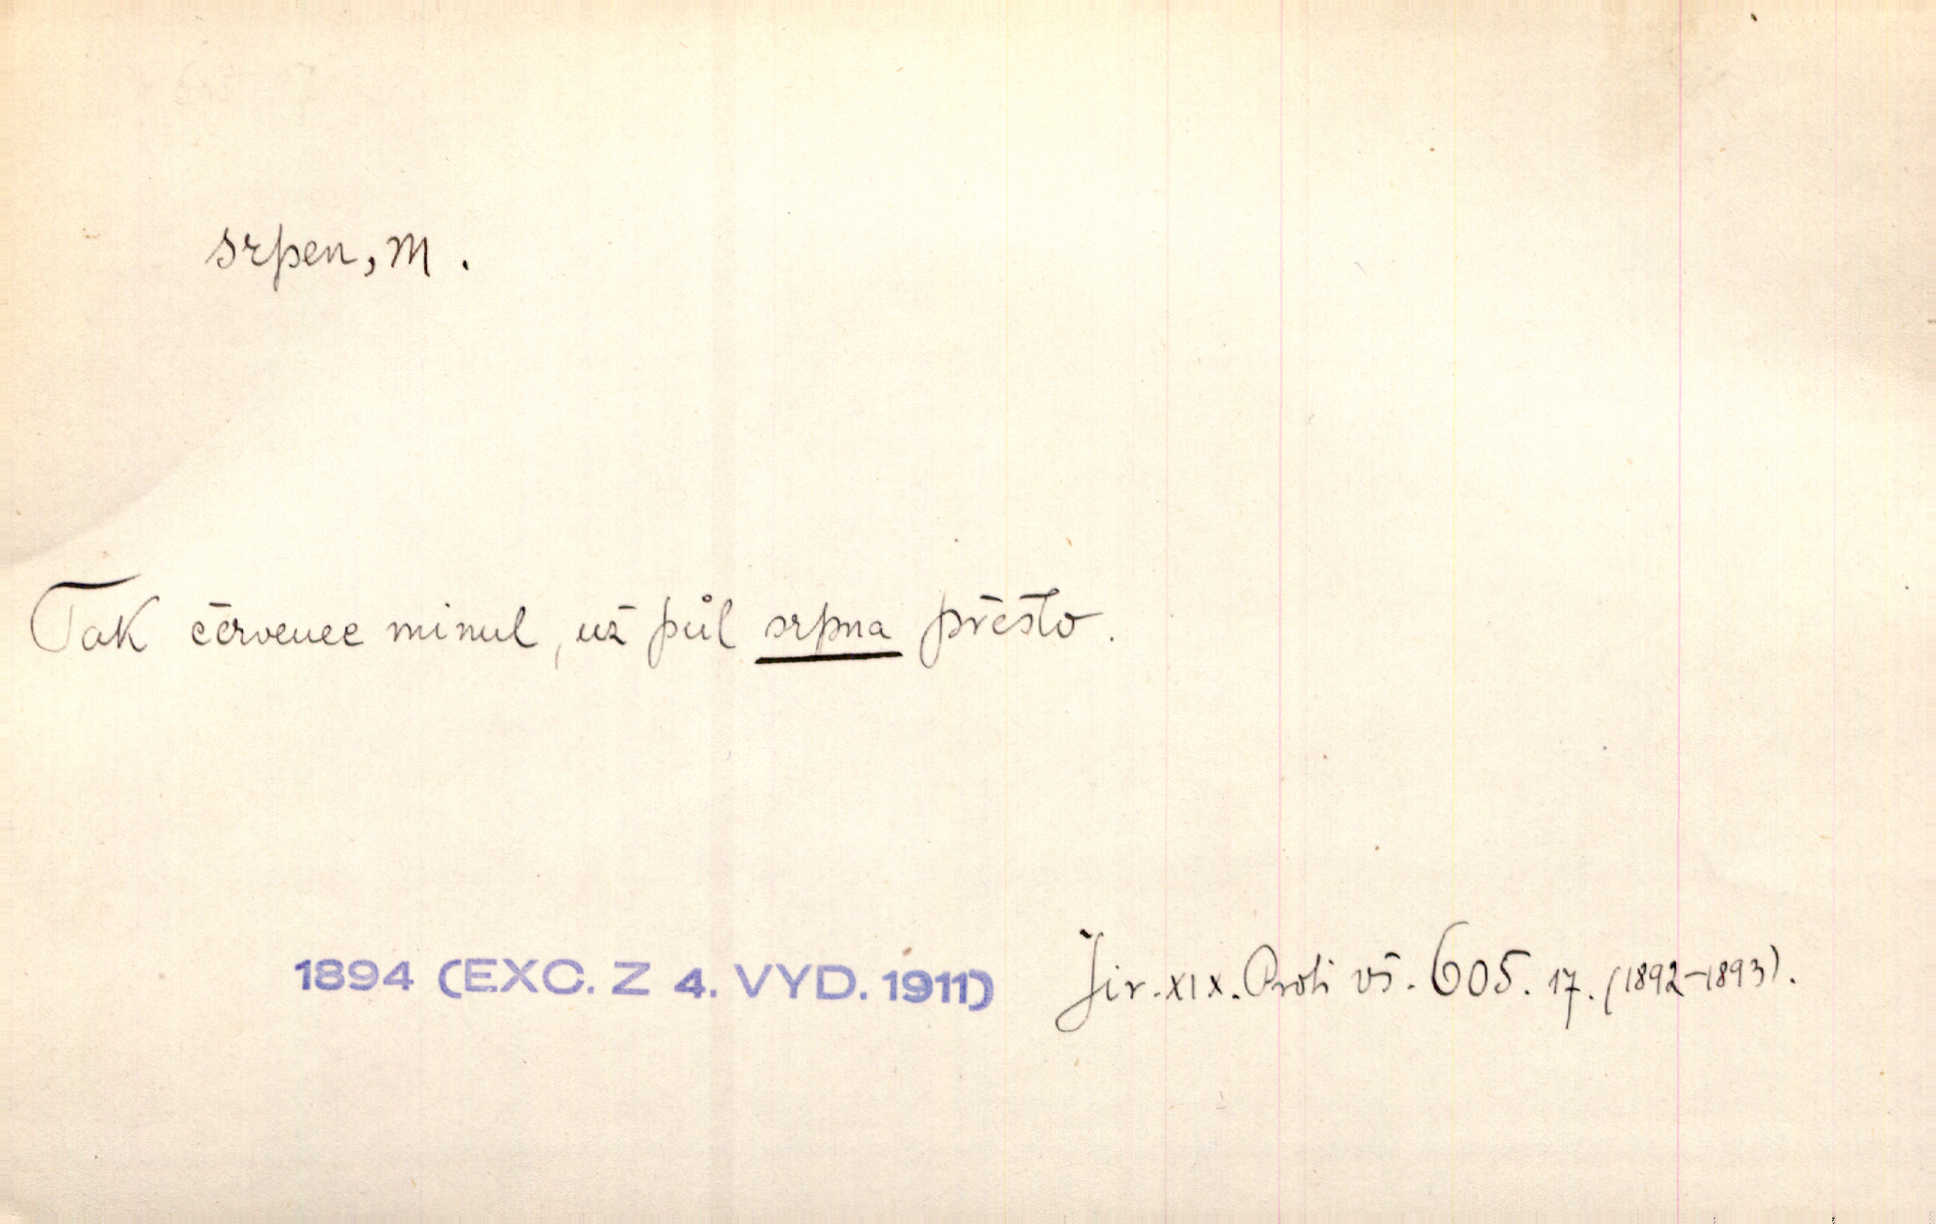 srpen, m.
Tak červenec minul, už půl srpna přešlo.
1894 (EXC. Z 4. VYD. 1911) Jir. XIX. Proti vš. 605. 17. (1892-1893).